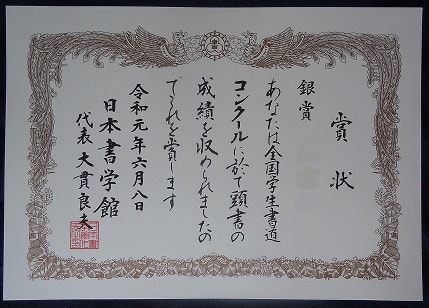 賞状
銀賞
あなたは全国学生書道
コンクールに於て頭書の
成績を収められましたの
でこれを賞します
令和元年六月八日
日本書学館
代表 大貫良夫